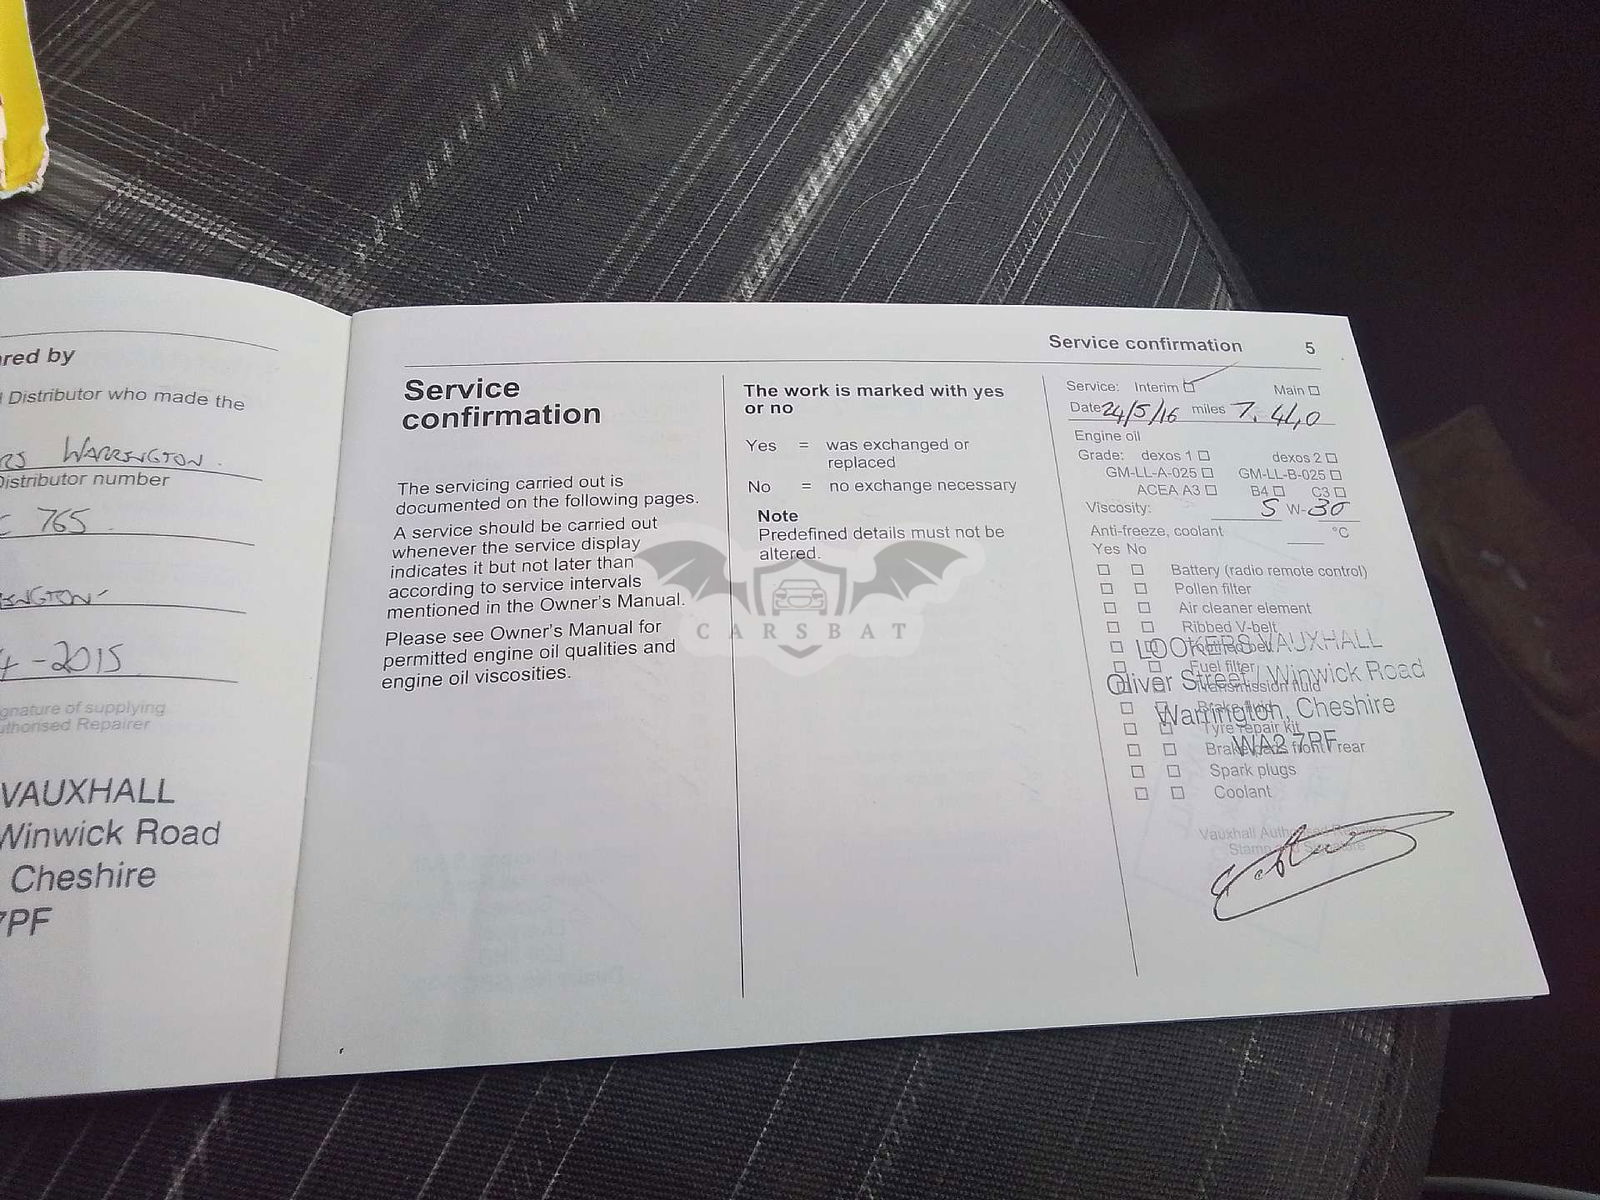 ared by
Distributor who made the
RS WARRINGTON.
Distributor number
C 765
4-2015
gnature of supplying
uthorised Repairer
VAUXHALL
Winwick Road
Cheshire
7PF
Service confirmation 5
Service
confirmation
The servicing carried out is
documented on the following pages.
A service should be carried out
whenever the service display
indicates it but not later than
according to service intervals
mentioned in the Owner's Manual.
Please see Owner's Manual for
permitted engine oil qualities and
engine oil viscosities.
The work is marked with yes
or no
Yes = was exchanged or
replaced
No = no exchange necessary
Note
Predefined details must not be
altered.
CARSBAT
Service: Interim Main
Date 24/5/16 miles
Engine oil
Grade: dexos 1 dexos 2
GM-LL-A-025 GM-LL-B-025
ACEA A3 B4 C3
Viscosity: 5 W-30
Anti-freeze, coolant °C
Yes No
Battery (radio remote control)
Pollen filter
Air cleaner element
Ribbed V-belt
Fuel filter
Transmission fluid
Brake fluid
Tyre repair kit
Brake pads front rear
Spark plugs
Coolant
LOOKERS VAUXHALL
Oliver Street / Winwick Road
Warrington, Cheshire
WA2 7PF
Vauxhall Authorised Repairer
Stamp and Signature